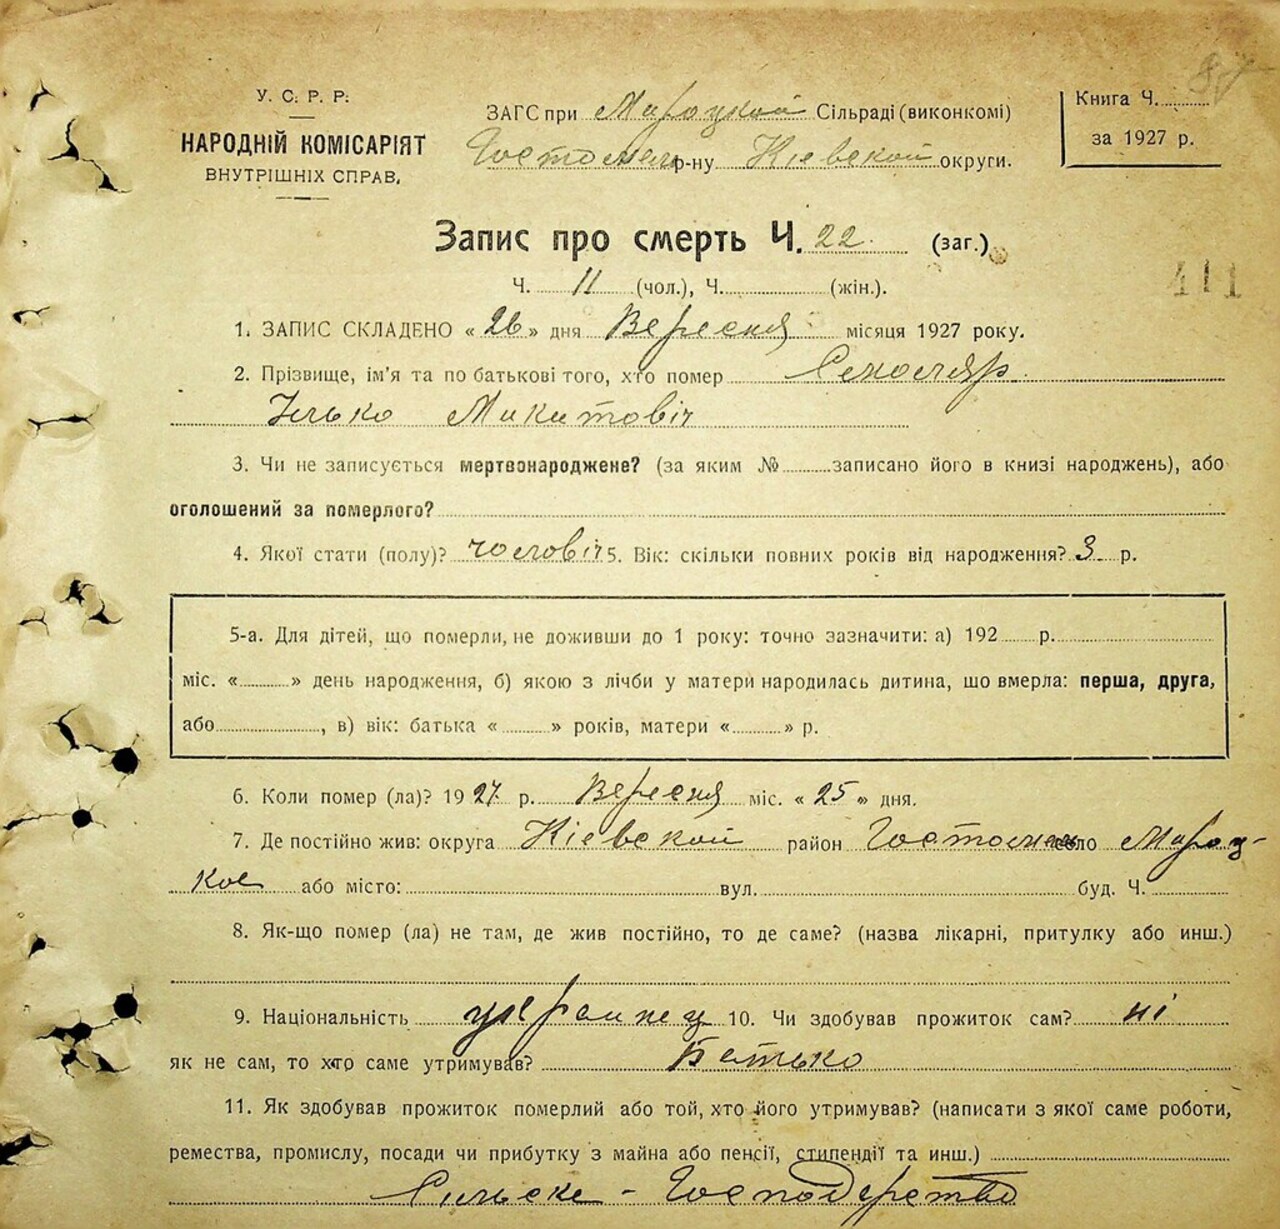 У. С. Р. Р.
НАРОДНІЙ КОМІСАРІЯТ
ВНУТРІШНІХ СПРАВ.
ЗАГС при Мироцкой Сільраді (виконкомі)
Гостомель р-ну Кіевской округи.
Книга Ч.
за 1927 р.
Запис про смерть Ч. 22. (заг.)
Ч. 11 (чол.), Ч. (жін.).
411
1. ЗАПИС СКЛАДЕНО « 26 » дня Вересня місяця 1927 року.
2. Прізвище, ім'я та по батькові того, хто помер Семоляр
Ілько Микитовіч
3. Чи не записується мертвонароджене? (за яким № записано його в книзі народжень), або
оголошений за померлого?
4. Якої стати (полу)? чоловіч 5. Вік: скільки повних років від народження? 3 р.
5-а. Для дітей, що померли, не доживши до 1 року: точно зазначити: а) 192 р.
міс. « » день народження, б) якою з лічби у матери народилась дитина, що вмерла: перша, друга,
або , в) вік: батька « » років, матери « » р.
6. Коли помер (ла)? 1927 р. Вересня міс. « 25 » дня.
7. Де постійно жив: округа Кіевской район Гостомель село Мироц-
кое або місто: вул. буд. Ч.
8. Як-що помер (ла) не там, де жив постійно, то де саме? (назва лікарні, притулку або инш.)
9. Національність украинец 10. Чи здобував прожиток сам? ні
як не сам, то хто саме утримував? Батько
11. Як здобував прожиток померлий або той, хто його утримував? (написати з якої саме роботи,
ремества, промислу, посади чи прибутку з майна або пенсії, стипендії та инш.)
Сильске - Господерство